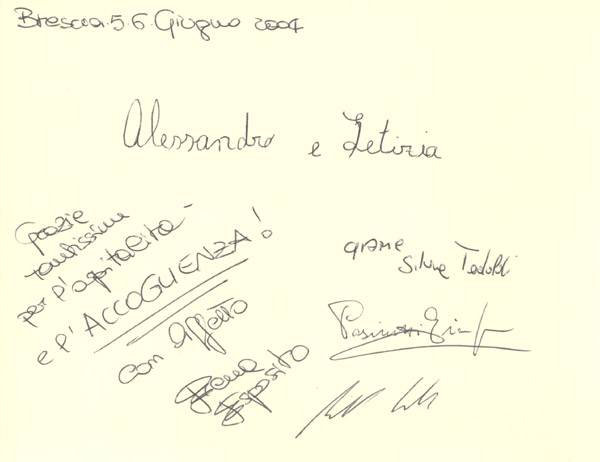 Brescia 5.6. Giugno 2004
Alessandro e Letizia
Grazie
tantissime
per l'ospitalità
e l'ACCOGLIENZA!
con affetto
Esposito
grazie
Silvia Tedoldi